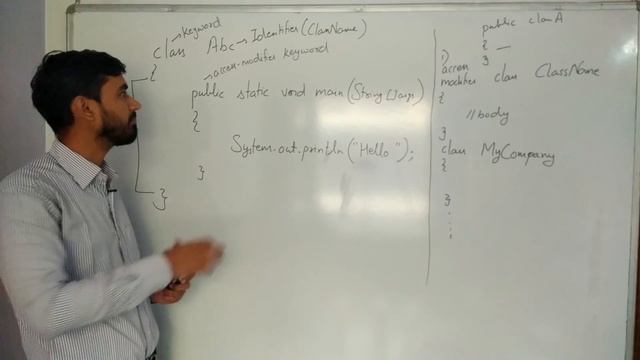 Keyword
class Abc → Identifier (ClassName)
{
access-modifier keyword
public static void main (String [] args)
{
System.out.println ("Hello");
}
}
public class A
{ —
}
1)
access
modifier class ClassName
{
//body
}
class MyCompany
{
}